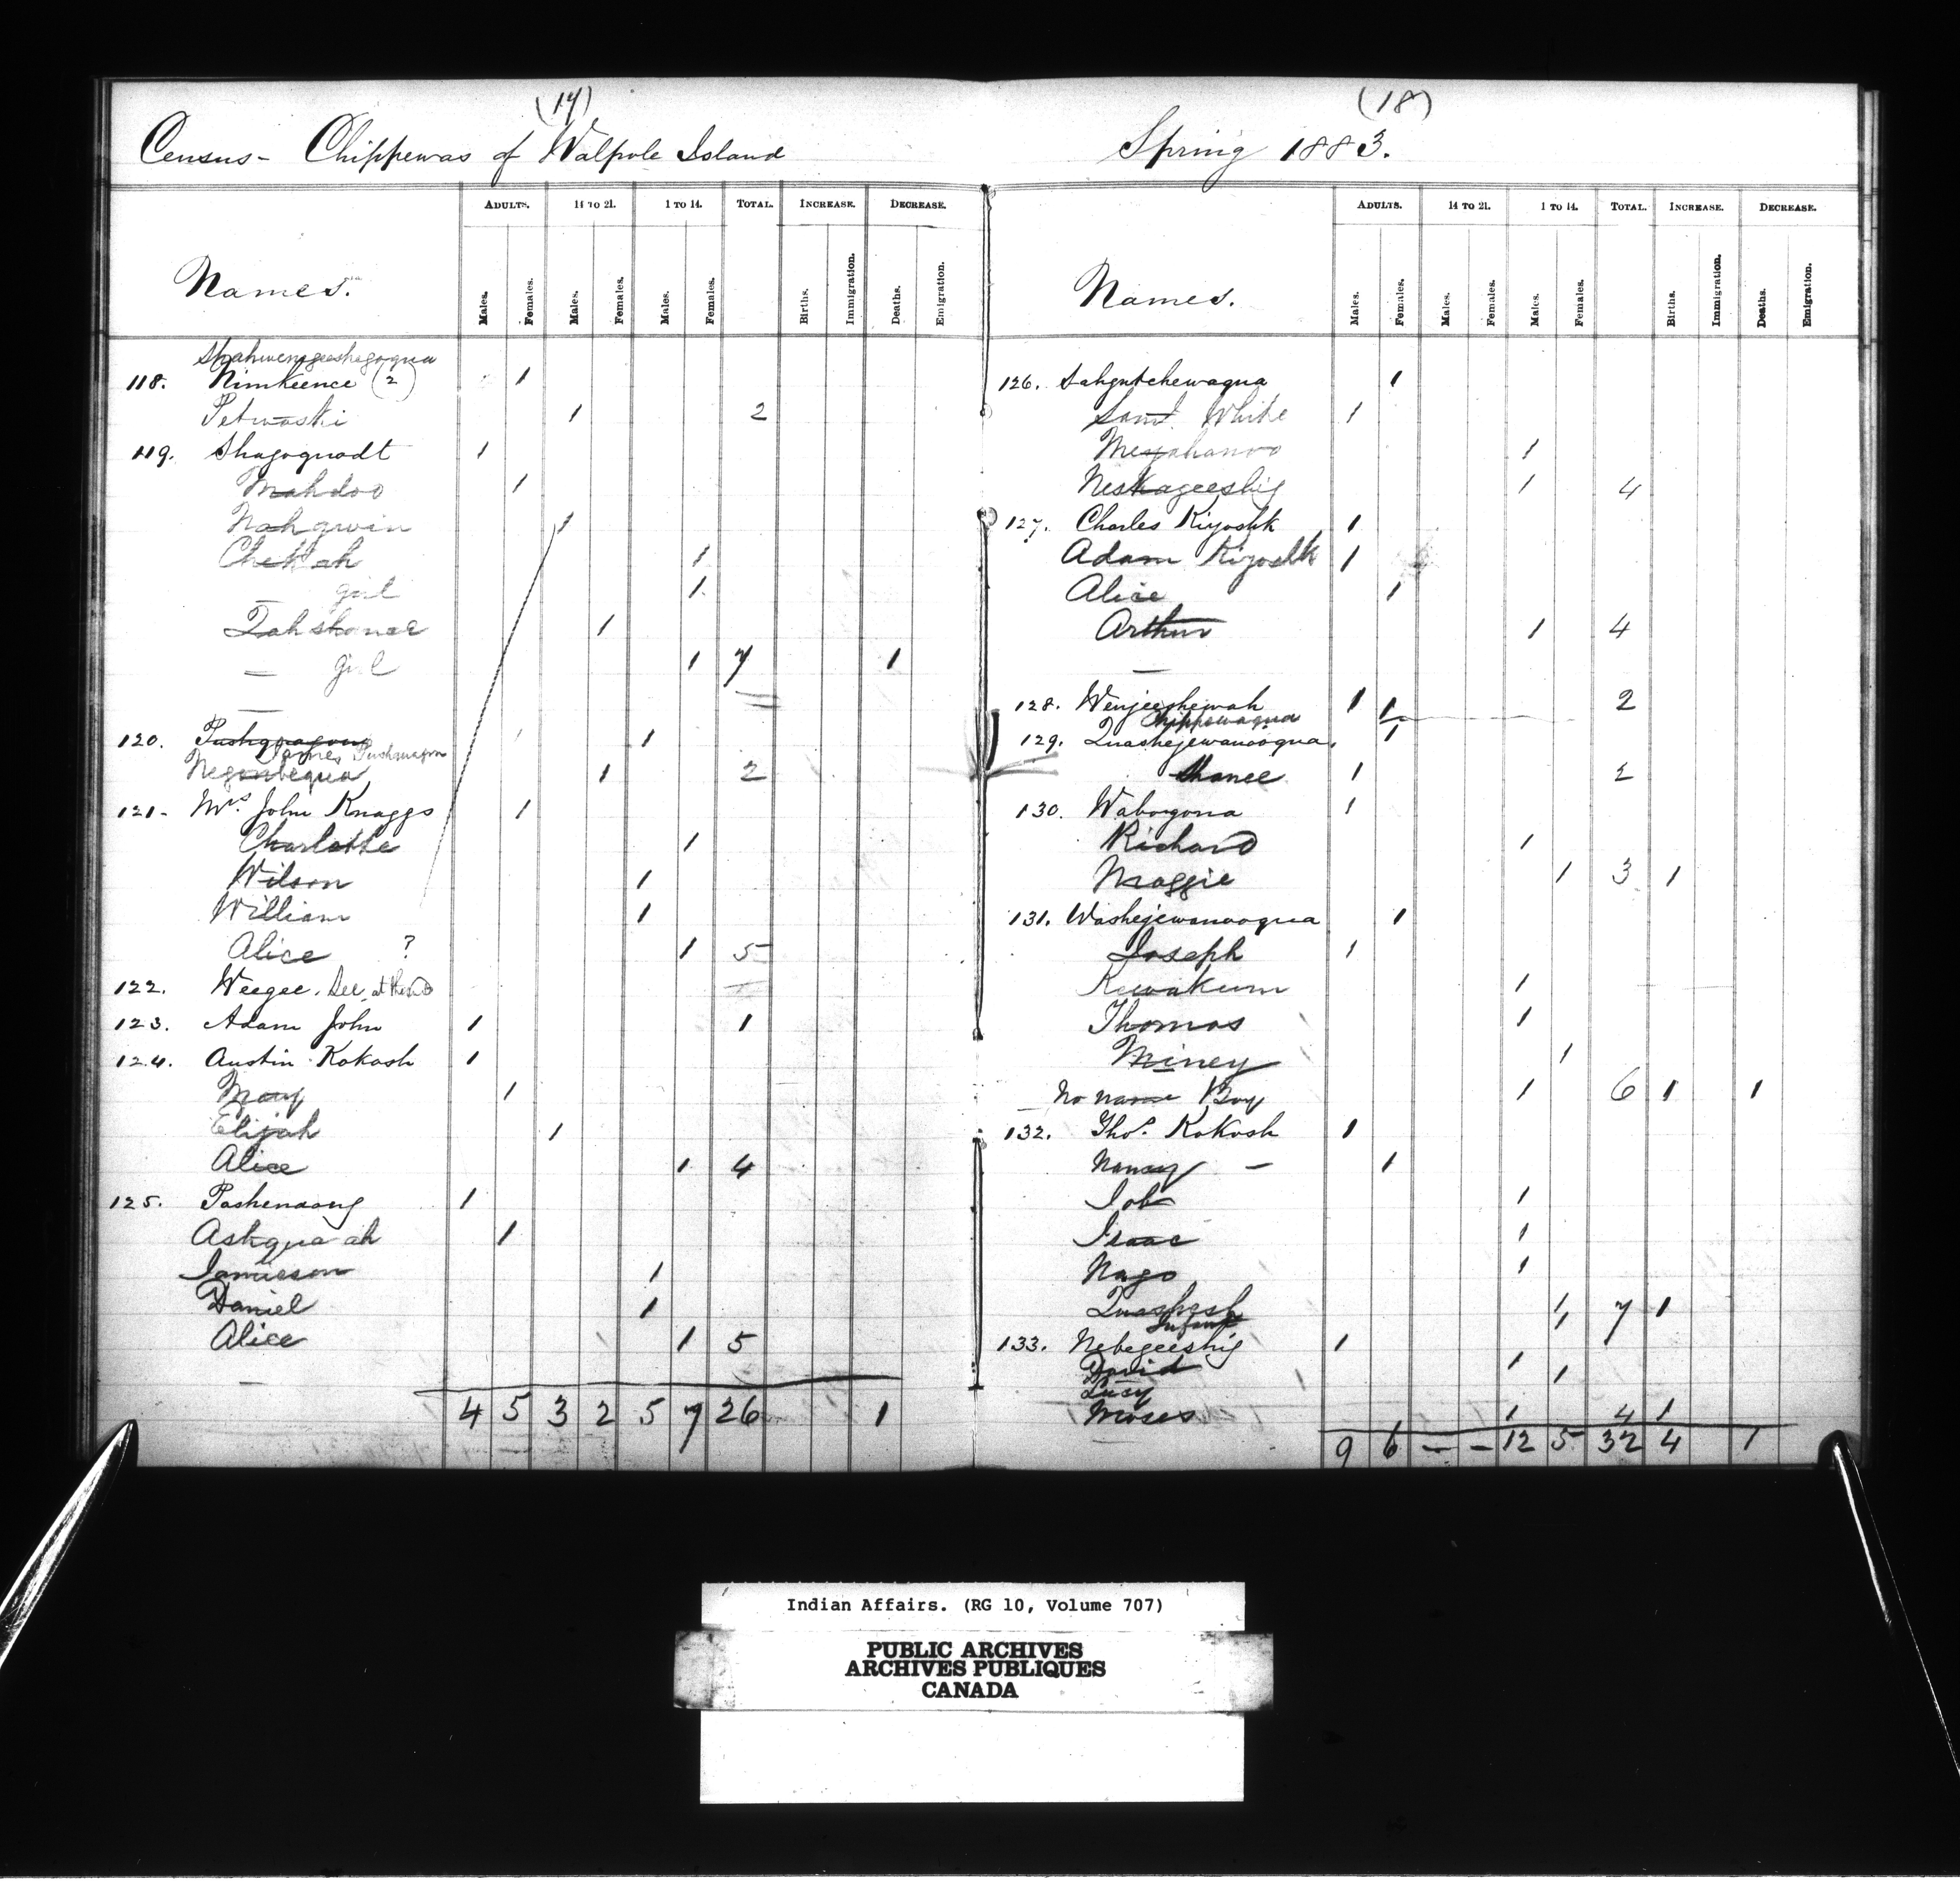 (17)
Census - Chippewas of Walpole Island
ADULTS. 14 TO 21. 1 TO 14. TOTAL. INCREASE. DECREASE.
Names. Males. Females. Males. Females. Males. Females. Births. Immigration. Deaths. Emigration.
Shahwenegeeshegoqua
118. Nimkeence (2) 1
Petwaski 1 2
119. Shagoguadt 1
Mahdoo 1
Nahgwin 1
Chekah 1
— girl 1
Tahshonee 1
— girl 1 7 1
120. Pashquagong 1
James Pashquagon
Negonbequa 1 2
121- Mrs John Knaggs 1
Charlotte 1
Wilson 1
William 1
Alice ? 1 5
122. Weegee. See at the end
123. Adam John 1 1
124. Austin Kokosh 1
Mary 1
Elijah 1
Alice 1 4
125. Pashenaong 1
Ashqua ah 1
Jamieson 1
Daniel 1
Alice 1 5
4 5 3 2 5 7 26 1
(18)
Spring 1883.
ADULTS. 14 TO 21. 1 TO 14. TOTAL. INCREASE. DECREASE.
Names. Males. Females. Males. Females. Males. Females. Births. Immigration. Deaths. Emigration.
126. Sahgutchewaqua 1
Saml. White 1
1
Neskageeshig 1 4
127. Charles Kiyoshk 1
Adam Kiyoshk 1
Alice 1
Arthur 1 4
—
128. Wenjeeshewah 1 1 2
Chippewaqua
129. Quashejewanooqua. 1
Shanee 1 2
130. Wabogona 1
Richard 1
Maggie 1 3 1
131. Washejewanooqua 1
Joseph 1
Kewakum 1
Thomas 1
Miney 1
No name Boy 1 6 1 1
132. Thos. Kokosh 1
Nancy — 1
Job 1
Isaac 1
Nago 1
Quashesh 1 7 1
Infant 1
133. Nebegeeshig 1
David 1
Lucy 1
Moses 1 4 1
9 6 — — 12 5 32 4 1
Indian Affairs. (RG 10, Volume 707)
PUBLIC ARCHIVES
ARCHIVES PUBLIQUES
CANADA